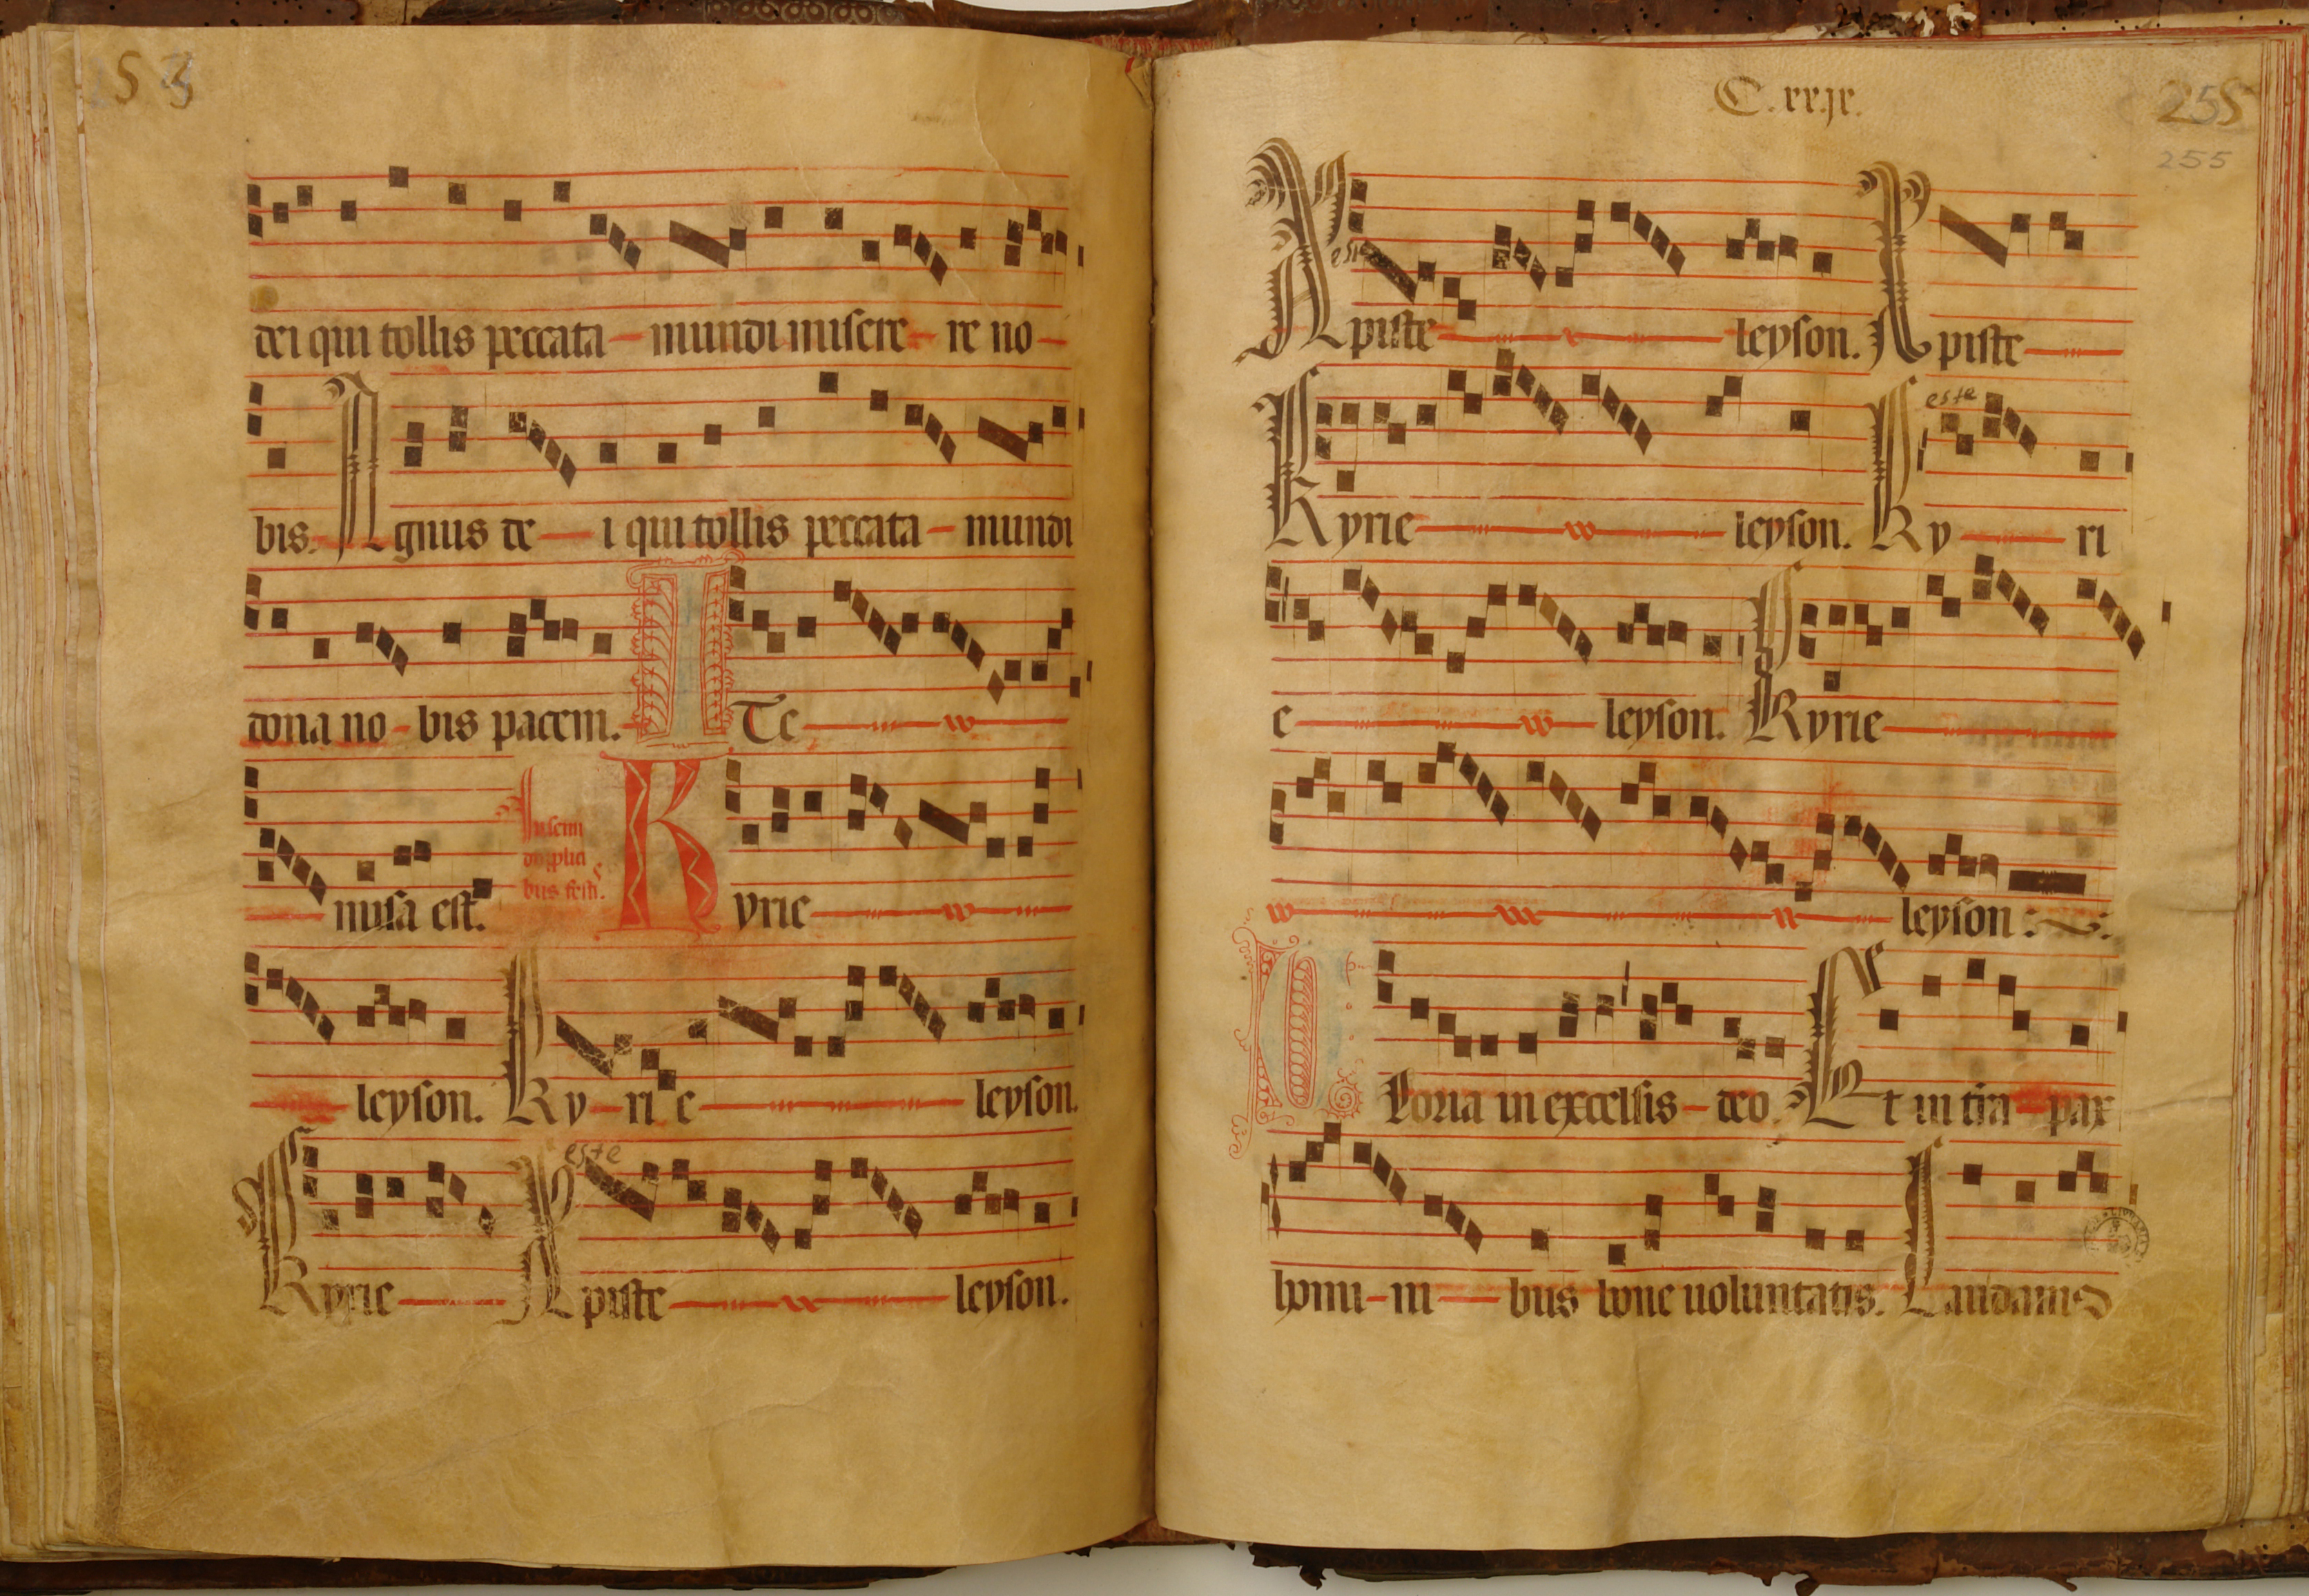 253
dei qui tollis peccata mundi misere re no
bis. Agnus de i qui tollis peccata mundi
dona no bis pacem. ITe
missa est. In semi duplici bus festis. Kyrie
leyson. Ky ri e leyson.
Kyrie Xpiste este leyson.
C.xx.jx.
255
255
Xpiste este leyson. Xpiste
Kyrie leyson. Ky este ri
e leyson. Kyrie
leyson
Gloria in excelsis deo. Et in tra pax
homi ni bus bone uoluntatis. Laudamus